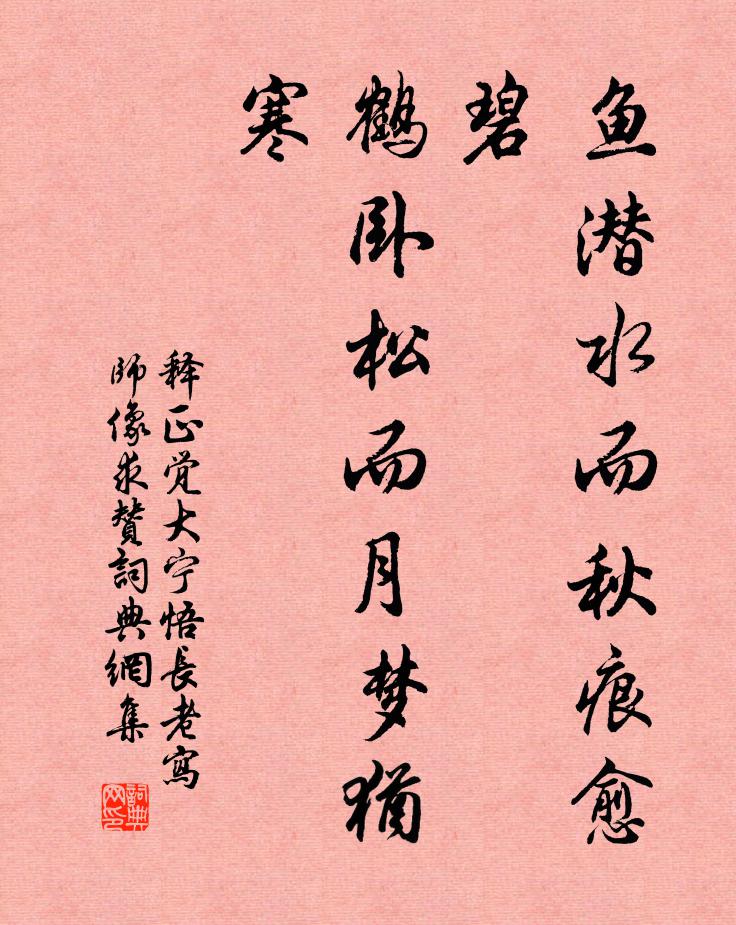 鱼潜水而秋痕愈
碧
鹤卧松而月梦犹
寒
释正觉大宁悟長老寫
師像求贊詞典網集
詞典
网印